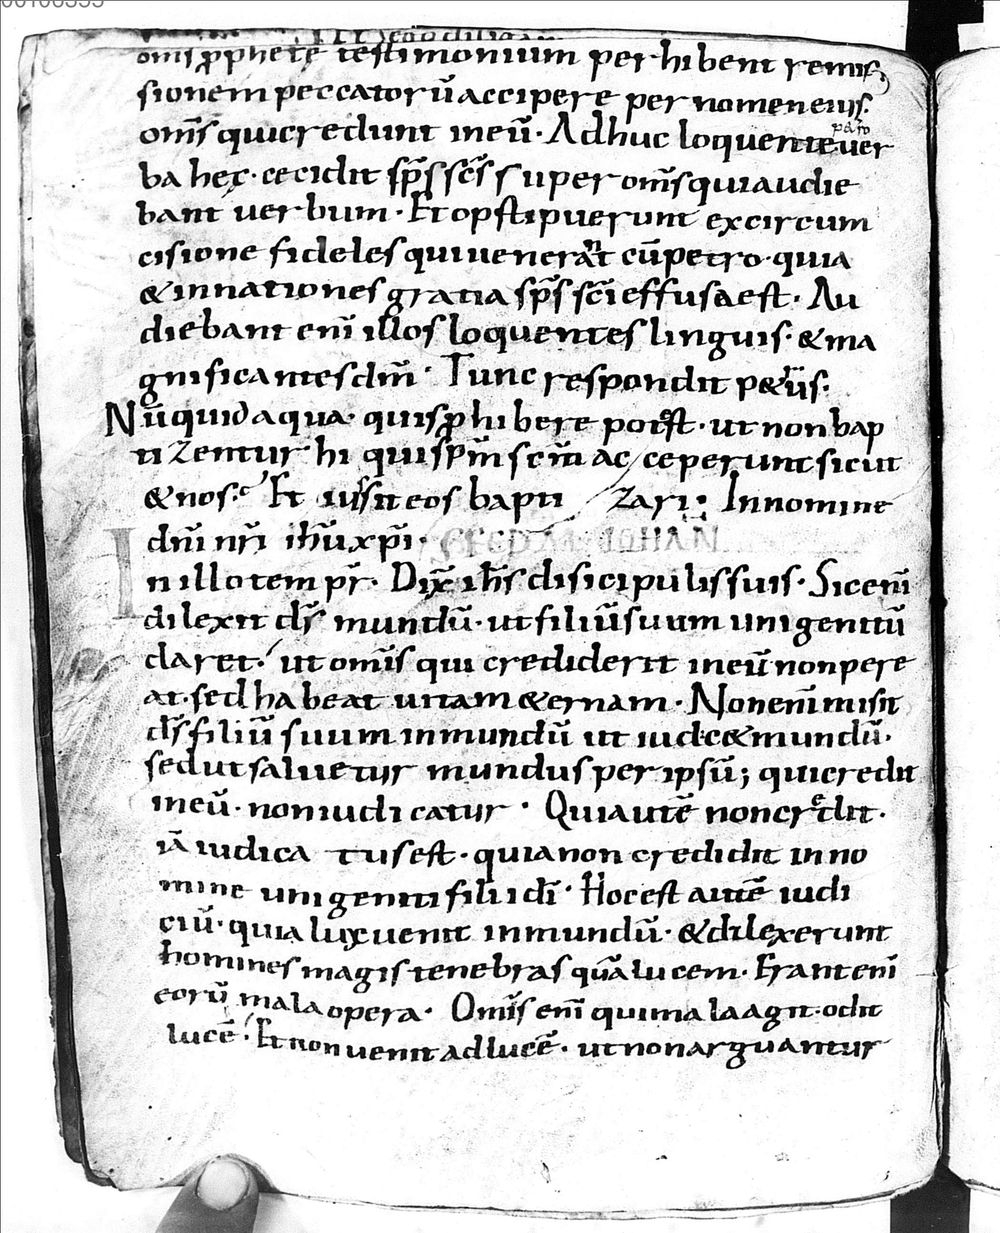 om̄s ꝓphetę testimonium perhibent remis
sionem peccatorū accipere per nomen eius.
om̄s qui credunt in eū. Adhuc loquente petro uer
ba hęc. cecidit sp̄s sc̄s super om̄s qui audie
bant uerbum. Et opstipuerunt ex circum
cisione fideles qui uenerant cū petro. quia
& in nationes gratia sp̄s sc̄i effusa est. Au
diebant enī illos loquentes linguis. & ma
gnificantes dm̄. Tunc respondit p&rus.
Nūquid aqua quis ꝓhibere potest. ut non bap
tizentur hi qui sp̄m sc̄m acceperunt sicut
& nos. Et iussit eos bapti zari. In nomine
dn̄i nr̄i ih̄u xp̄i.
SECDM IOHAN
In illo tempr̄. Dix̄ ih̄s disicipulis suis. Sic enī
dilexit ds̄ mundū. ut filiū suum unigenitū
daret. ut om̄is qui crediderit in eū non pere
at. sed habeat uitam &ernam. Non enī misit
ds̄ filiū suum in mundū ut iudic& mundū.
sed ut saluetur mundus per ipsū; qui credit
in eū. non iudicatur. Qui autē non credit.
iā iudicatus est. quia non credidit in no
mine unigeniti filii dī. Hoc est autē iudi
ciū. quia lux uenit in mundū. & dilexerunt
homines magis tenebras quā lucem. Erant enī
eorū mala opera. Om̄is enī qui mala agit. odit
lucē. Et non uenit ad lucē. ut non arguantur